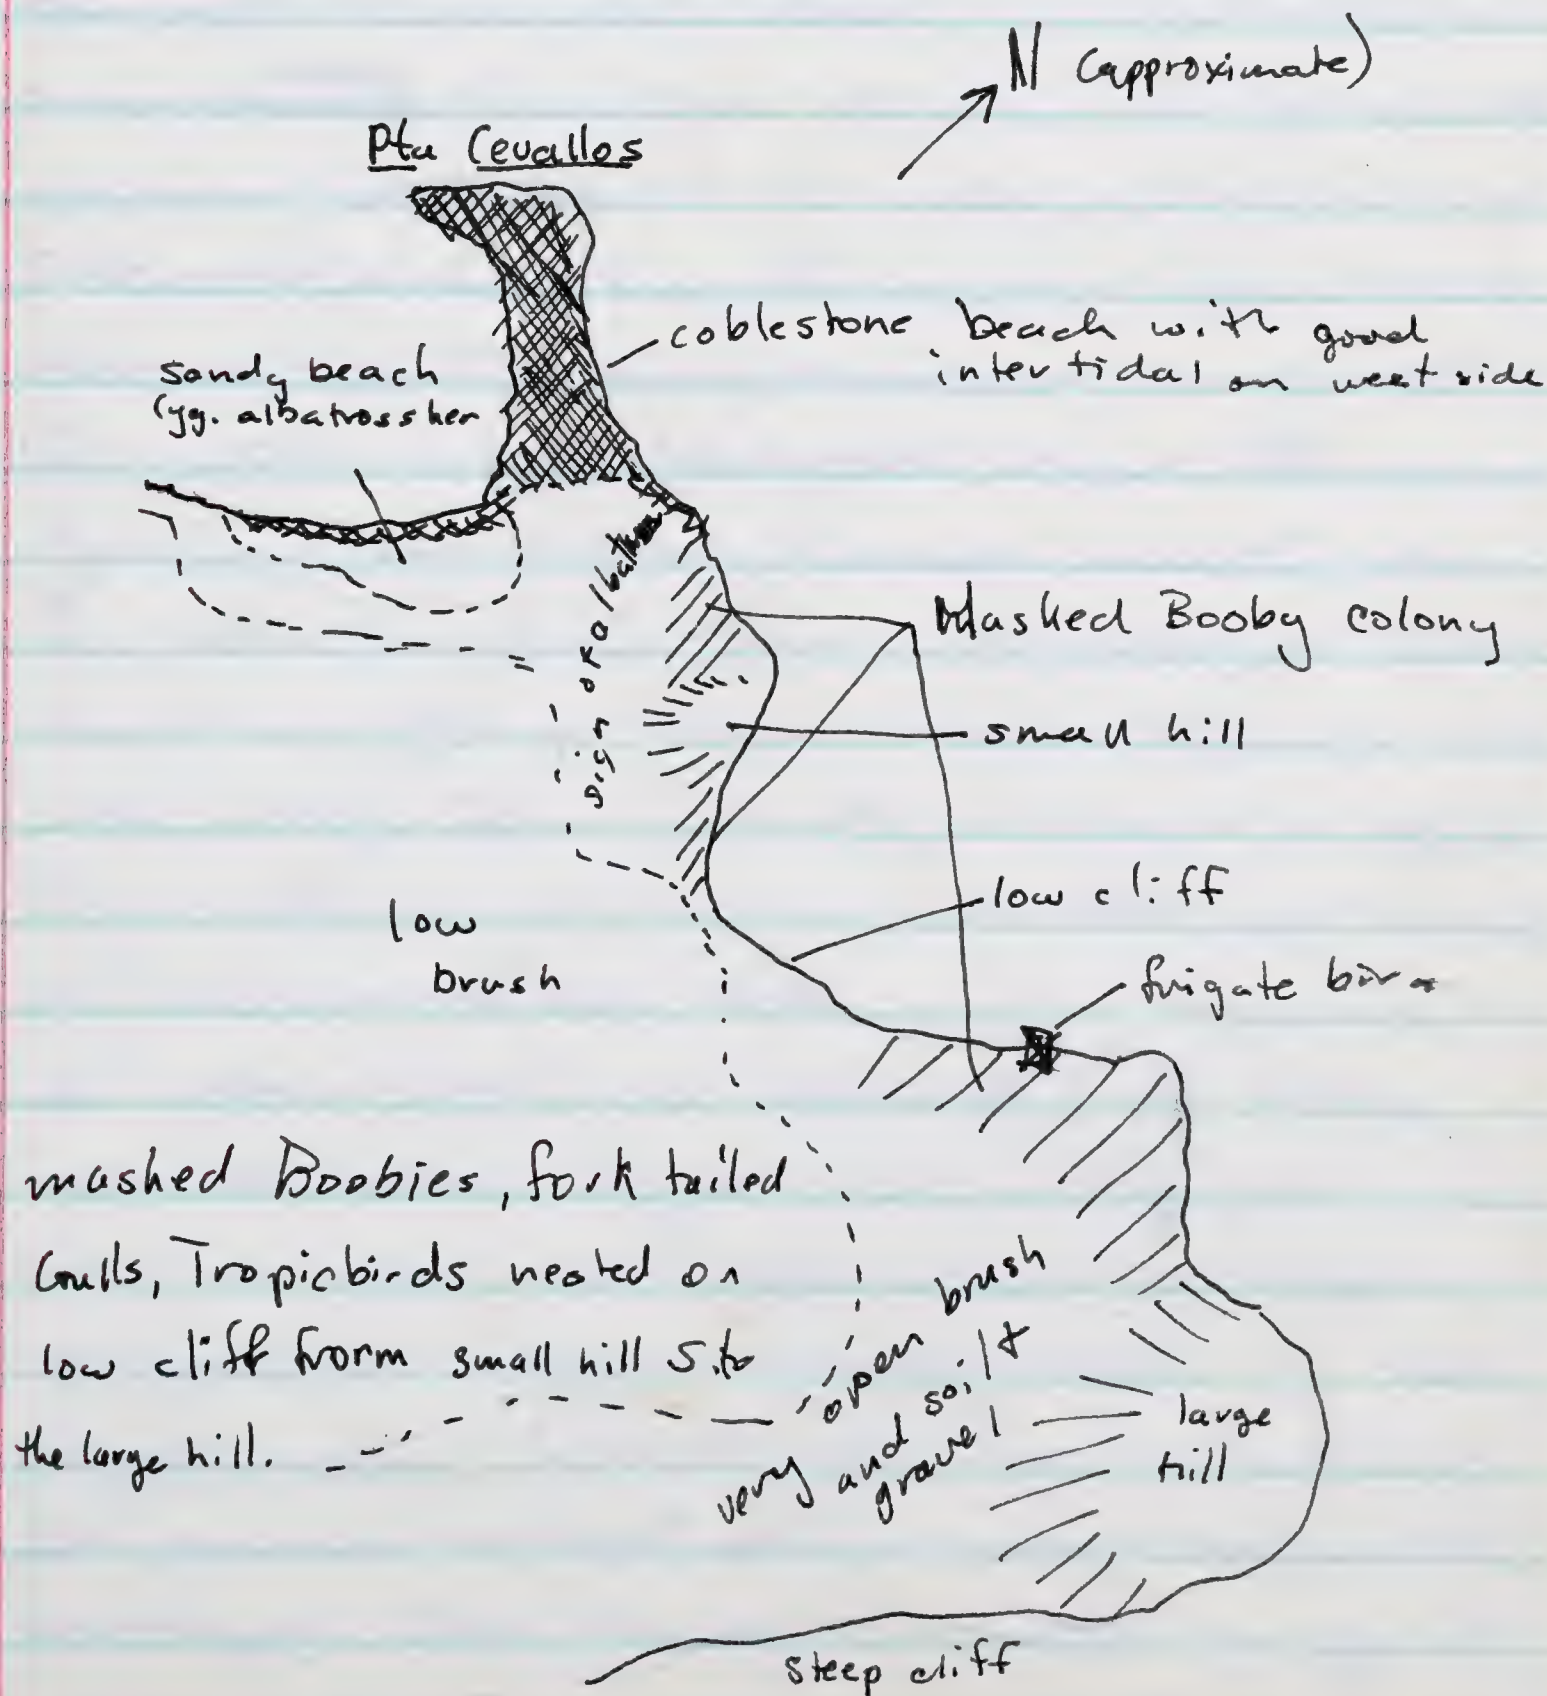 N (approximate)
Pta Cevallos
coblestone beach with good
intertidal on west side
sandy beach
(yg. albatross her
sign of albatross
Masked Booby colony
small hill
low cliff
low
brush
frigate bird
masked Boobies, fork tailed
Gulls, Tropicbirds nested on
low cliff frorm small hill S. to
the large hill.
open brush
very and soil &
gravel
large
hill
steep cliff